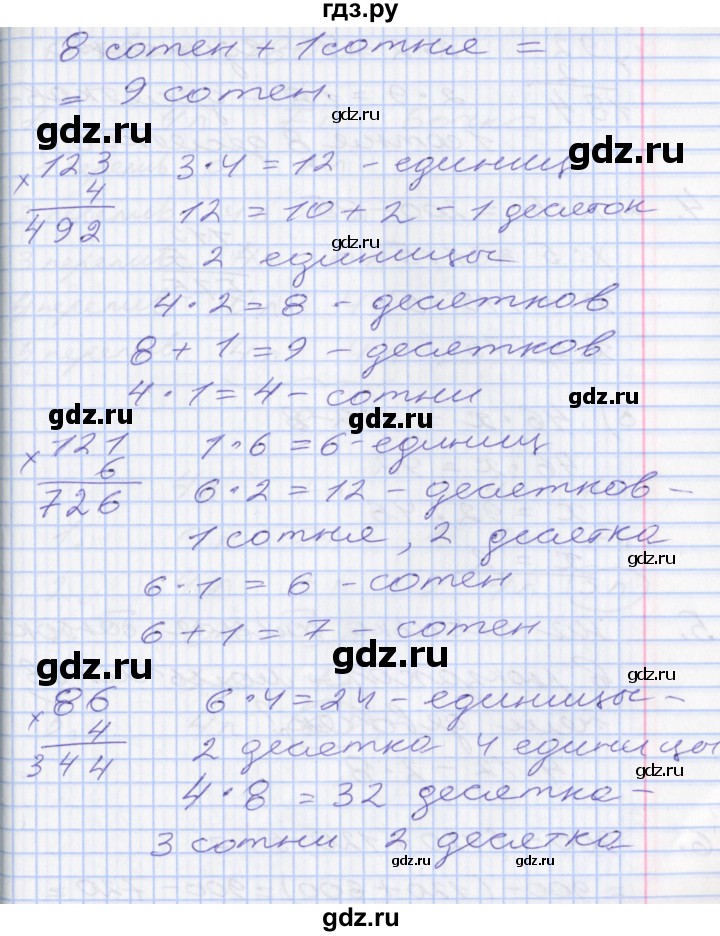 гдз.ру
8 сотен + 1 сотня =
= 9 сотен.
gdz.ru
gdz.ru
gdz.ru
123
× 4
492
3·4=12 - единиц
gdz.ru
12 = 10 + 2 - 1 десяток
gdz.ru
2 единицы
4·2=8 - десятков
8+1=9 - десятков
4·1=4 - сотни
gdz.ru
gdz.ru
gdz.ru
121
× 6
726
1·6=6 - единиц
6·2=12 - десятков -
1 сотня, 2 десятка
gdz.ru
6·1=6 - сотен
6+1=7 - сотен
gdz.ru
gdz.ru
gdz.ru
86
× 4
344
6·4=24 - единицы -
2 десятка 4 единицы
gdz.ru
4·8=32 десятка -
3 сотни 2 десятка
gdz.ru
gdz.ru
gdz.ru